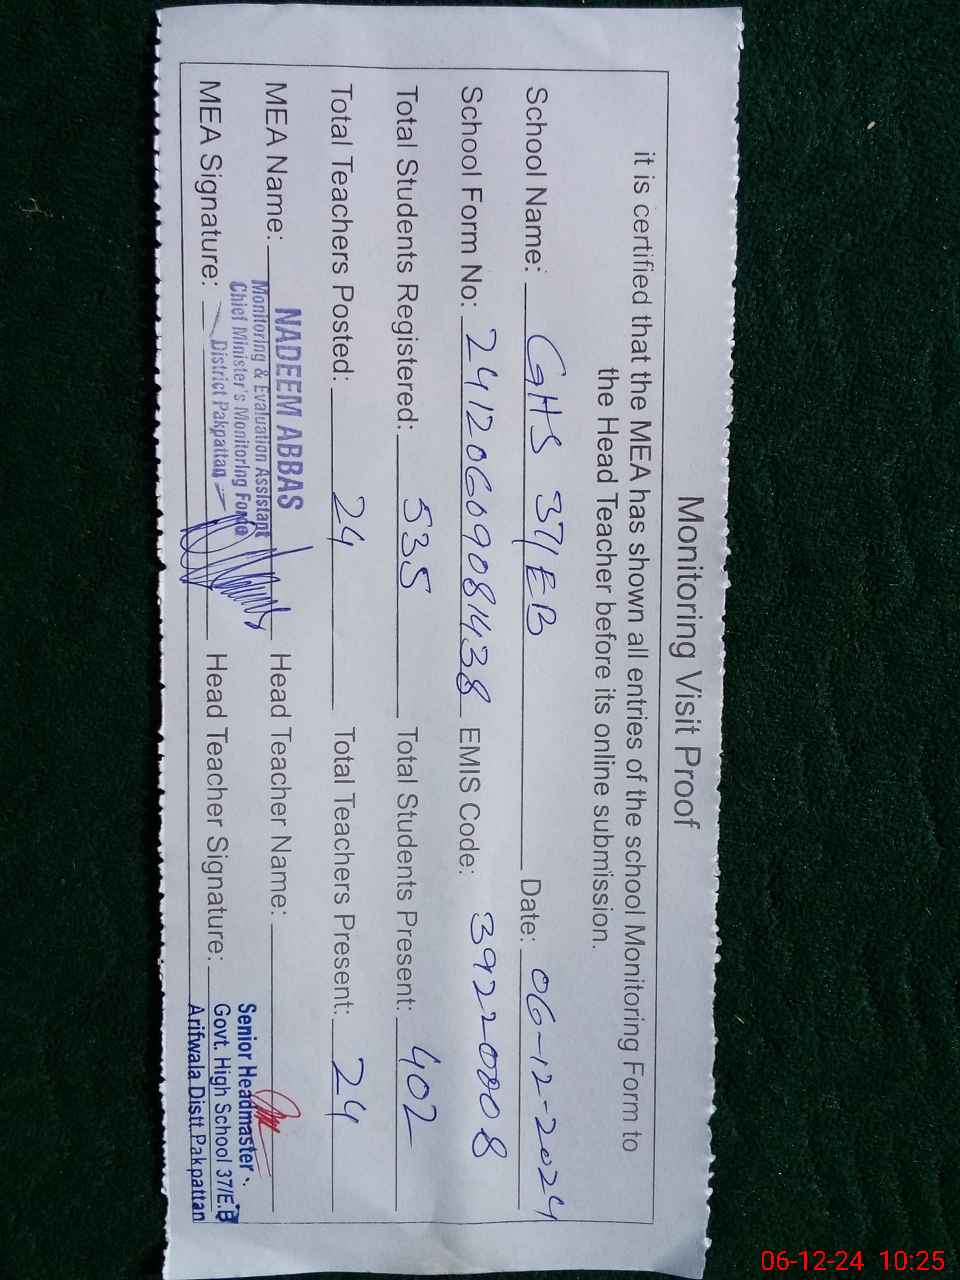 Monitoring Visit Proof
it is certified that the MEA has shown all entries of the school Monitoring Form to
the Head Teacher before its online submission.
School Name: GHS 37/EB Date: 06-12-2024
School Form No: 24120609081438 EMIS Code: 39220008
Total Students Registered: 535 Total Students Present: 402
Total Teachers Posted: 24 Total Teachers Present: 24
MEA Name: NADEEM ABBAS Head Teacher Name:
Monitoring & Evaluation Assistant
Chief Minister's Monitoring Force
District Pakpattan
MEA Signature: Head Teacher Signature:
Senior Headmaster
Govt. High School 37/E.B
Arifwala Distt.Pakpattan
06-12-24 10:25